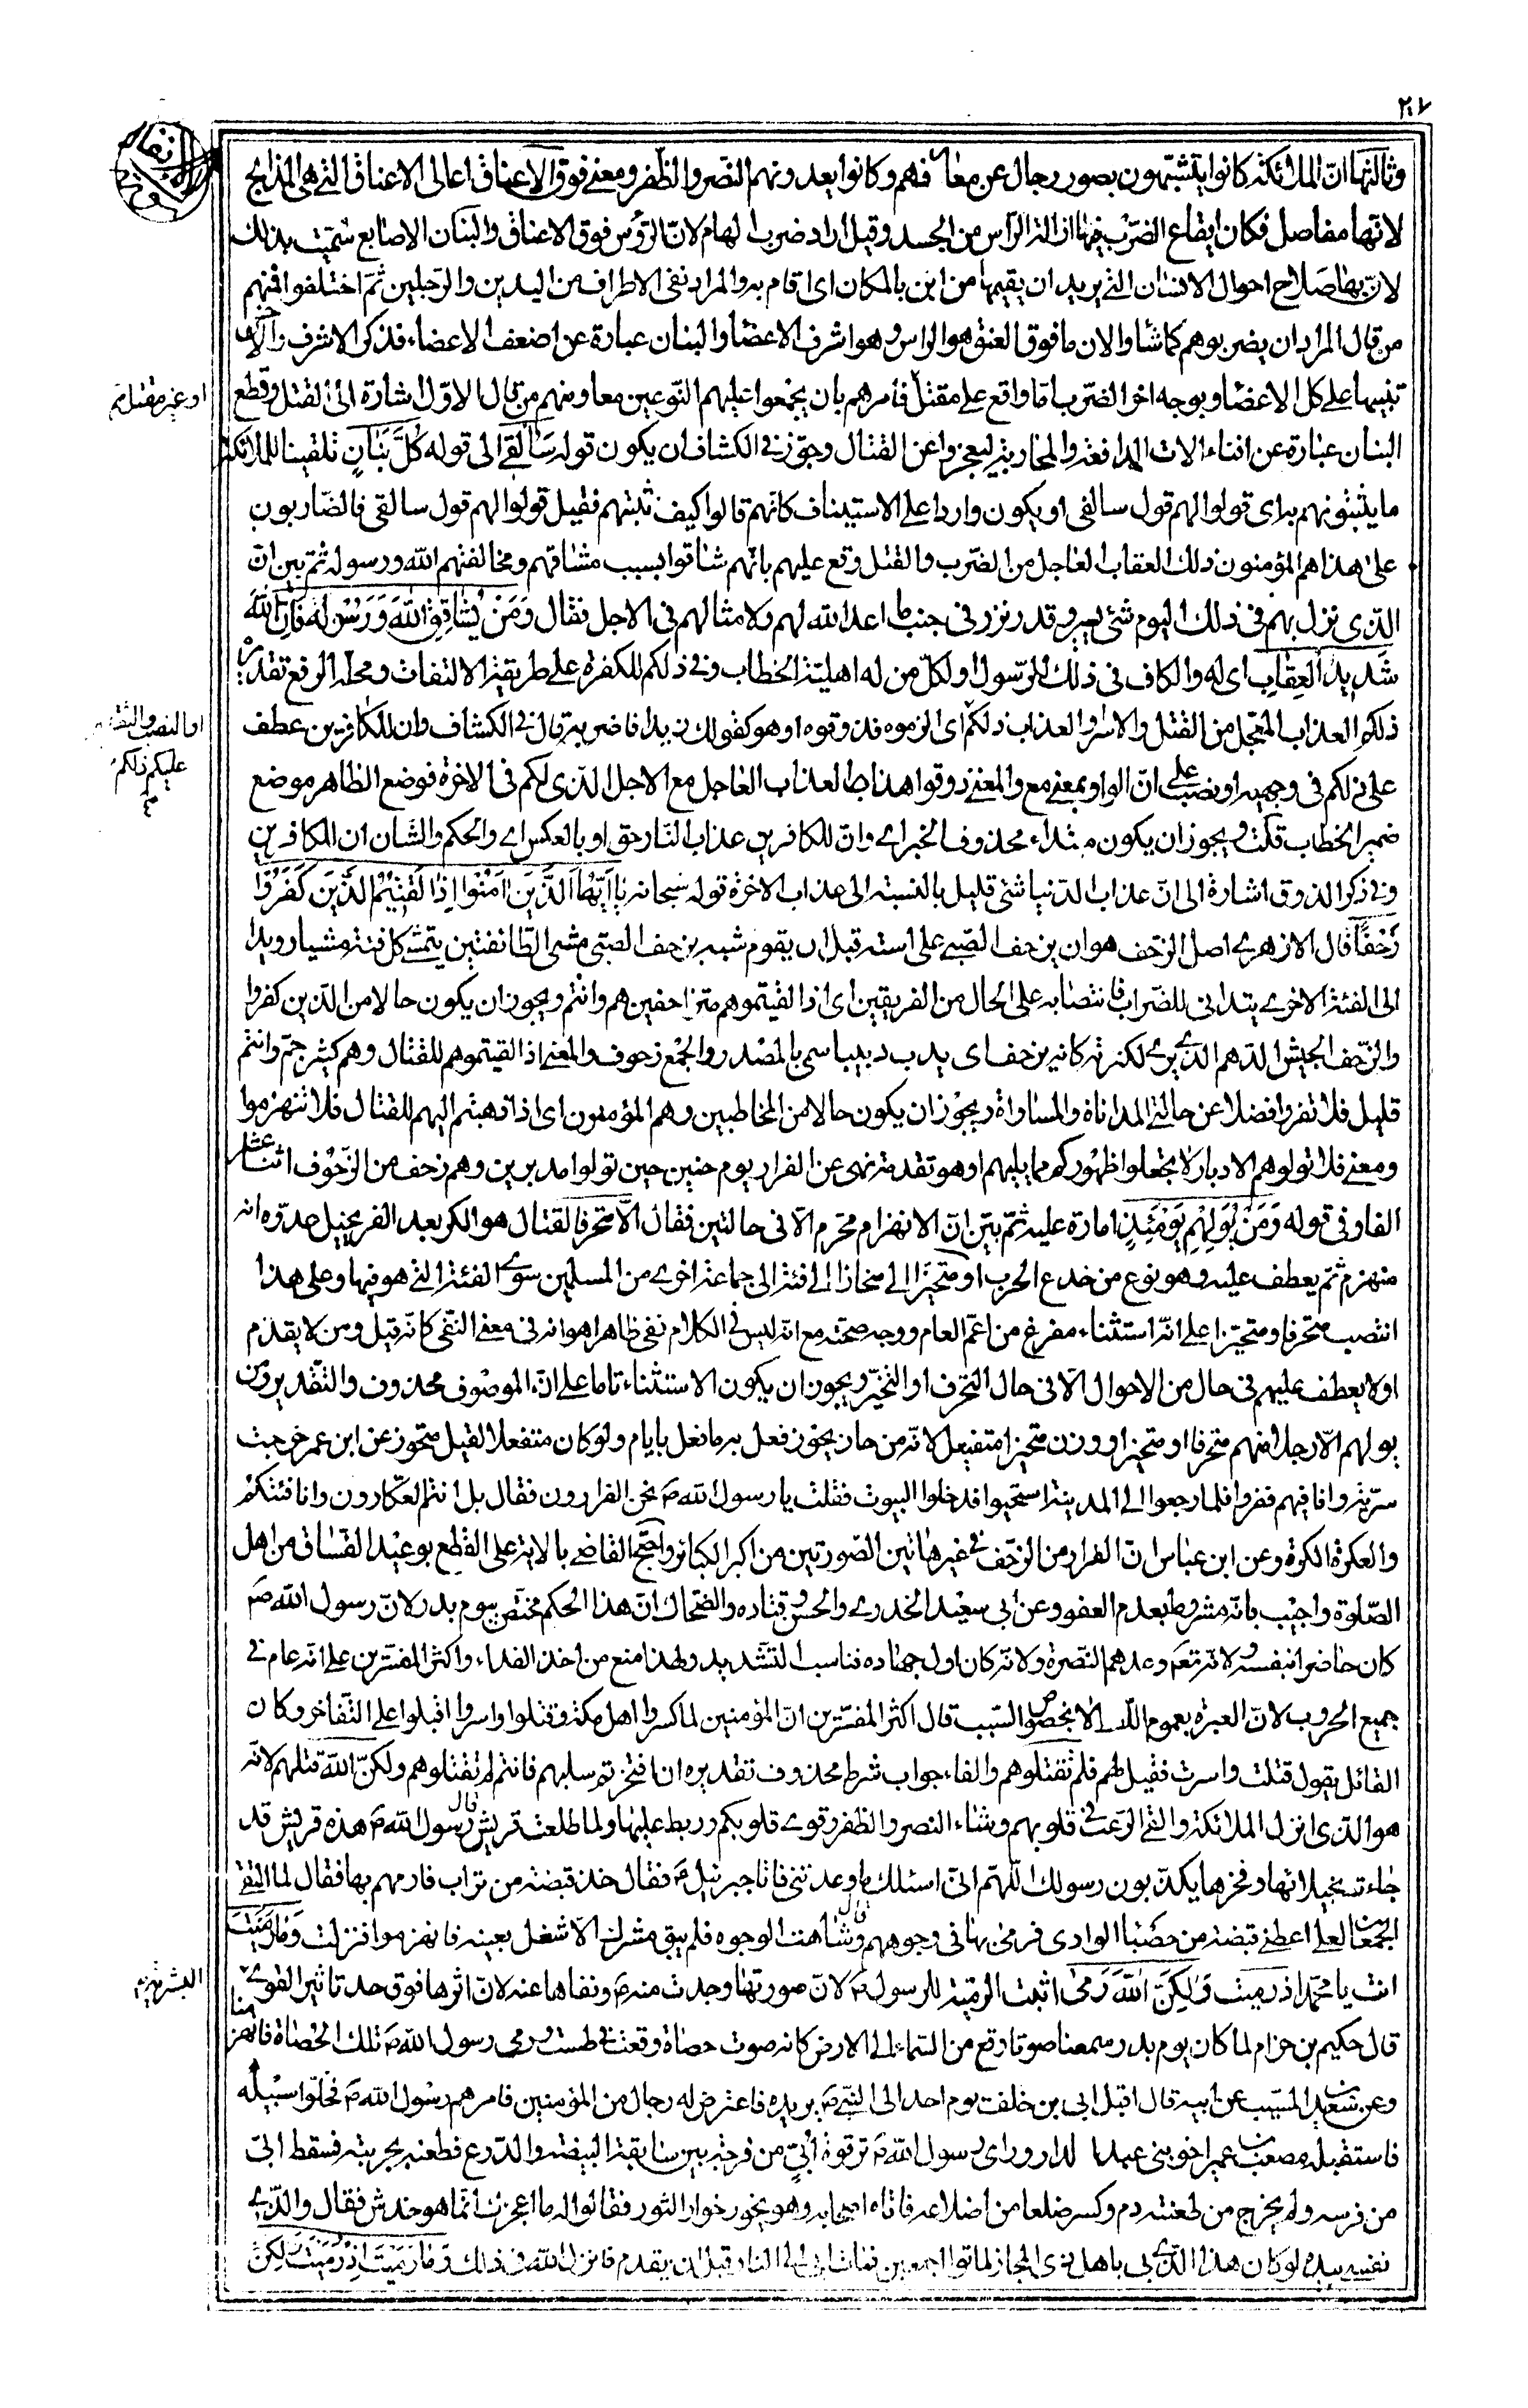 ٢٠٧
وثالثها انّ الملائكة كانوا يتشبّهون بصور رجال عن معارفهم وكانوا يعدونهم النّصر والظّفر ومعنى فوق الاعناق اعالى الاعناق الّتى هى المذابح
لانّها مفاصل فكان ايقاع الضّرب فيها ازالة الرّاس من الجسد وقيل اراد ضرب الهام لانّ الرّؤس فوق الاعناق والبنان الاصابع سُمّيت بذلك
لانّ بها صلاح احوال الانسان الّتى يريد ان يقيمها من ابن بالمكان اى اقام به والمراد نفى الاطراف من اليدين والرّجلين ثمّ اختلفوا فمنهم
من قال المراد ان يضربوهم كما شاؤا لان ما فوق العنق هو الراس وهو اشرف الاعضاء والبنان عبارة عن اضعف الاعضاء فذكر الاشرف والاخسّ
تنبيها على كل الاعضاء وبوجه اخر الضّرب امّا واقع على مقتل او غير مقتل فامرهم بان يجمعوا عليهم النّوعين معا ومنهم من قال الاوّل اشارة الى القتل وقطع
البنان عبارة عن افناء الات المدافعة والمحاربة ليعجزوا عن القتال وجوّز فى الكشاف ان يكون قوله سَأُلْقِي الى قوله كُلَّ بَنَانٍ تلقينا للملائكة
ما يثبتونهم به اى قولوا لهم قول سالقى او يكون واردا على الاستيناف كانّهم قالوا كيف نثبّتهم فقيل قولوا لهم قول سالقى فالضّاربون
على هذا هم المؤمنون ذلك العقاب العاجل من الضّرب والقتل وقع عليهم بانّهم شاقّوا بسبب مشاقّهم ومخالفتهم الله ورسوله ثمّ بين انّ
الّذى نزل بهم فى ذلك اليوم شئ يسير وقدر نزر فى جنب ما اعد الله لهم ولامثالهم فى الاجل فقال وَمَنْ يُشَاقِقِ اللهَ وَرَسُولَهُ فَاِنَّ اللهَ
شَدِيدُ الْعِقَابِ اى له والكاف فى ذلك للرّسول او لكلّ من له اهليّة الخطاب وفى ذلكم للكفرة على طريقة الالتفات ومحلّه الرفع تقديره
ذلكم العذاب المعجّل من القتل والاسر او العذاب ذلكم او النصب والتقدير عليكم ذلكم اى الزموه فذوقوه او هو كقولك زيدا فاضربه قال فى الكشاف وان للكافرين عطف
على ذلكم فى وجهيه او نصب على انّ الواو بمعنى مع والمعنى ذوقوا هذا العذاب العاجل مع الاجل الّذى لكم فى الاخرة فوضع الظاهر موضع
ضمير الخطاب قلت ويجوز ان يكون مبتداء محذوف الخبر اى وانّ للكافرين عذاب النّار حق او بالعكس اى والحكم والشان ان للكافرين
وفى ذكر الذوق اشارة الى انّ عذاب الدّنيا شئ قليل بالنّسبة الى عذاب الاخرة قوله سبحانه يَا اَيُّهَا الَّذِينَ اٰمَنُوا اِذَا لَقِيتُمُ الَّذِينَ كَفَرُوا
زَحْفًا قال الازهرى اصل الزحف هو ان يزحف الصّبى على استه قبل ان يقوم شبه بزحف الصبّى مشى الطّائفتين يتمشّى كل فئة مشيا رويدا
الى الفئة الاخرى يتدانى للضّراب فانتصابه على الحال من الفريقين اى اذا لقيتموهم متزاحفين هم وانتم ويجوز ان يكون حالا من الّذين كفروا
والزّحف الجيش الدّهم الّذى يرى لكثرته كانه يزحف اى يدب دبيبا سمى بالمصدر والجمع زحوف والمعنى اذا لقيتموهم للقتال وهم كثير جمّ وانتم
قليل فلا تفروا فضلا عن حالتى المداناة والمساواة ويجوز ان يكون حالا من المخاطبين وهم المؤمنون اى اذا ذهبتم اليهم للقتال فلا تنهزموا
ومعنى فلا تولوهم الادبار لا تجعلوا ظهوركم مما يليهم او هو تقدمة نهى عن الفرار يوم حنين حين تولوا مدبرين وهم زحف من الزّحوف اثنا عشر
الفا وفى قوله وَمَنْ يُوَلِّهِمْ يَوْمَئِذٍ امارة عليه ثمّ بيّن انّ الانهزام محرّم الّا فى حالتين فقال الّا متحرفا لقتال هو الكر بعد الفر يخيل عدوّه انه
منهزم ثمّ يعطف عليه وهو نوع من خدع الحرب او متحيّزا الى منحازا الى فئة الى جماعة اخرى من المسلمين سوى الفئة الّتى هو فيها وعلى هذا
انتصب متحرفا ومتحيّزا على انّه استثناء مفرغ من اعمّ العام ووجه صحّته مع انّه ليس فى الكلام نفى ظاهرا هو انه فى معنى النّفى كانّه قيل ومن لا يقدّم
او لا يعطف عليهم فى حال من الاحوال الّا فى حال التحّرف او التحيّز ويجوز ان يكون الاستثناء تاما على انّ الموصوف محذوف والتقدير ومن
يولهم الّا رجلا منهم متحرفا او متحيزا ووزن متحيزا متفيعل لانّه من حاز يحوز فعل به ما فعل بايام ولو كان متفعلا لقيل متحوز عن ابن عمر خرجت
سريّة وانا فيهم ففروا فلما رجعوا الى المدينة استحيوا فدخلوا البيوت فقلت يا رسول الله ص نحن الفرارون فقال بل انتم العكّارون وانا فئتكم
والعكرة الكرة وعن ابن عباس انّ الفرار من الزحف فى غير هاتين الصّورتين من اكبر الكبائر واحتجّ القاضى بالاية على القطع بوعيد الفسّاق من اهل
الصّلوة واجيب بانّه مشروط بعدم العفو وعن ابى سعيد الخدرى والحسن وقتاده والضحاك انّ هذا الحكم مختص بيوم بدر لانّ رسول الله ص
كان حاضرا بنفسه ولانّه تع وعدهم النّصرة ولانّه كان اول جهاده فناسب التّشديد ولهذا منع من اخذ الفداء واكثر المفسّرين على انّه عام فى
جميع الحروب لانّ العبرة بعموم اللّفظ لا بخصوص السّبب قال اكثر المفسّرين انّ المؤمنين لما كسروا اهل مكة وقتلوا واسروا اقبلوا على التّفاخر وكان
القائل يقول قتلت واسرت فقيل لهم فلم تقتلوهم والفاء جواب شرط محذوف تقديره ان افتخرتم بسلبهم فانتم لم تقتلوهم ولكنّ الله قتلهم لانّه
هو الّذى انزل الملائكة والقى الرّعب فى قلوبهم وشاء النصر والظفر وقوى قلوبكم وربط عليها ولما طلعت قريش قال رسول الله ص هذه قريش قد
جاءت بخيلائها وفخرها يكذّبون رسولك اللّهمّ انّى اسئلك ما وعدتنى فاتا جبرئيل ع فقال خذ قبضة من تراب فارمهم بها فقال لما التقى
الجمعان لعلى اعطنى قبضة من حصباء الوادى فرمى بها فى وجوههم وقال شاهت الوجوه فلم يبق مشرك الّا شغل بعينه فانهزموا فنزلت وَمَا رَمَيْتَ
انت يا محمّد اذ رميت وَلٰكِنَّ اللهَ رَمٰى اثبت الرّمية للرسول ص لانّ صورتها وجدت منه ص ونفاها عنه لانّ اثرها فوق حد تاثير القوى البشرية
قال حكيم بن حزام لما كان يوم بدر سمعنا صوتا وقع من السّماء الى الارض كانه صوت حصاة وقعت فى طست ورمى رسول الله ص تلك الحصاة فانهزمنا
وعن سعيد بن المسيّب عن ابيه قال اقبل ابى بن خلف يوم احد الى النّبى ص يريده فاعترض له رجال من المؤمنين فامرهم رسول الله ص فخلّوا سبيله
فاستقبله مصعب بن عمير اخو بنى عبد الدار وراى رسول الله ص ترقوة اُبىّ من فرجة بين سابغة البيضة والدّرع فطعنه بحربته فسقط ابىّ
من فرسه ولم يخرج من طعنته دم وكسر ضلعا من اضلاعه فاتاه اصحابه وهو يخور خوار الثور فقالوا له ما اعجزك انّما هو خدش فقال والّذى
نفسى بيده لو كان هذا الّذى بى باهل ذى المجاز لماتوا اجمعين فمات ابى الى النار قبل ان يقدم فانزل الله فى ذلك وَمَا رَمَيْتَ اِذْ رَمَيْتَ وَلٰكِنَّ